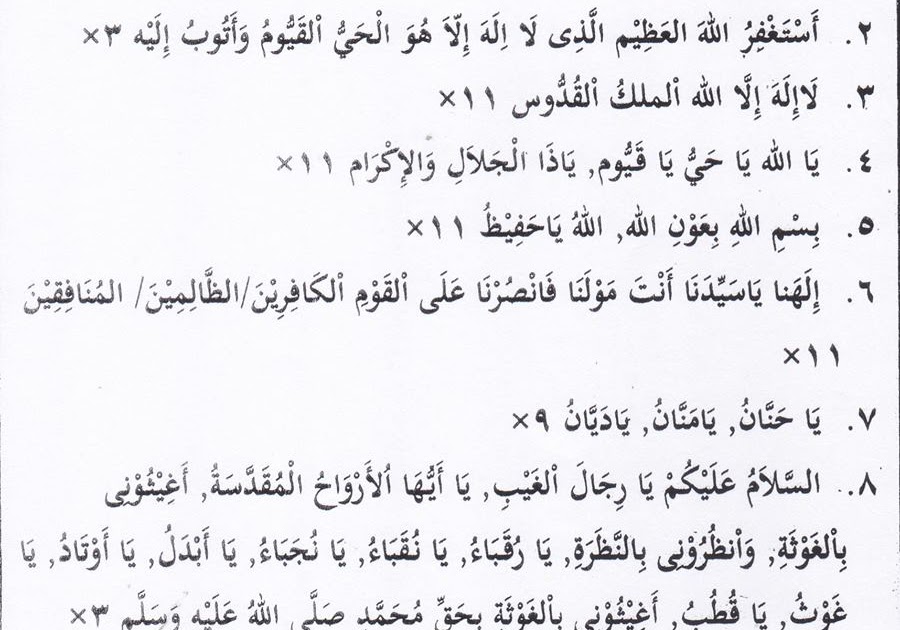 ٢. أَسْتَغْفِرُ اللهَ العَظِيْم الَّذِى لَا اِلَهَ إِلاَّ هُوَ الْحَيُّ اْلقَيُّومُ وَأَتُوبُ إِلَيْه ٣×
٣. لَاإِلَهَ إِلَّا الله اْلملكُ اْلقُدُّوس ١١×
٤. يَا الله يَا حَيُّ يَا قَيُّوم, يَاذَا الْجَلاَلِ وَالإِكْرَام ١١×
٥. بِسْمِ اللهِ بِعَوْنِ الله, اللهُ يَاحَفِيْظُ ١١×
٦. إِلَهَنا يَاسَيِّدَنَا أَنْتَ مَوْلَنَا فَانْصُرْنَا عَلَى اْلقَوْمِ اْلكَافِرِيْنَ/الظَّالِمِيْنَ/ المُنَافِقِيْنَ
١١×
٧. يَا حَنَّانُ, يَامَنَّانُ, يَادَيَّانُ ٩×
٨. السَّلاَمُ عَلَيْكُمْ يَا رِجَالَ اْلغَيْبِ, يَا أَيُّهَا اْلأَرْوَاحُ الْمُقَدَّسَةُ, أَغِيْثُوْنِى
بِاْلغَوْثَةِ, وَاْنظُرُوْنِى بِالنَّظَرَةِ, يَا رُقَبَاءُ, يَا نُقَبَاءُ, يَا نُجَبَاءُ, يَا أَبْدَلُ, يَا أَوْتَادُ, يَا
غَوْثُ, يَا قُطُبُ, أَغِيْثُوْنِى بِاْلغَوْثَةِ بِحَقِّ مُحَمَّدٍ صَلَّى اللهُ عَلَيْهِ وَسَلَّم ٣×